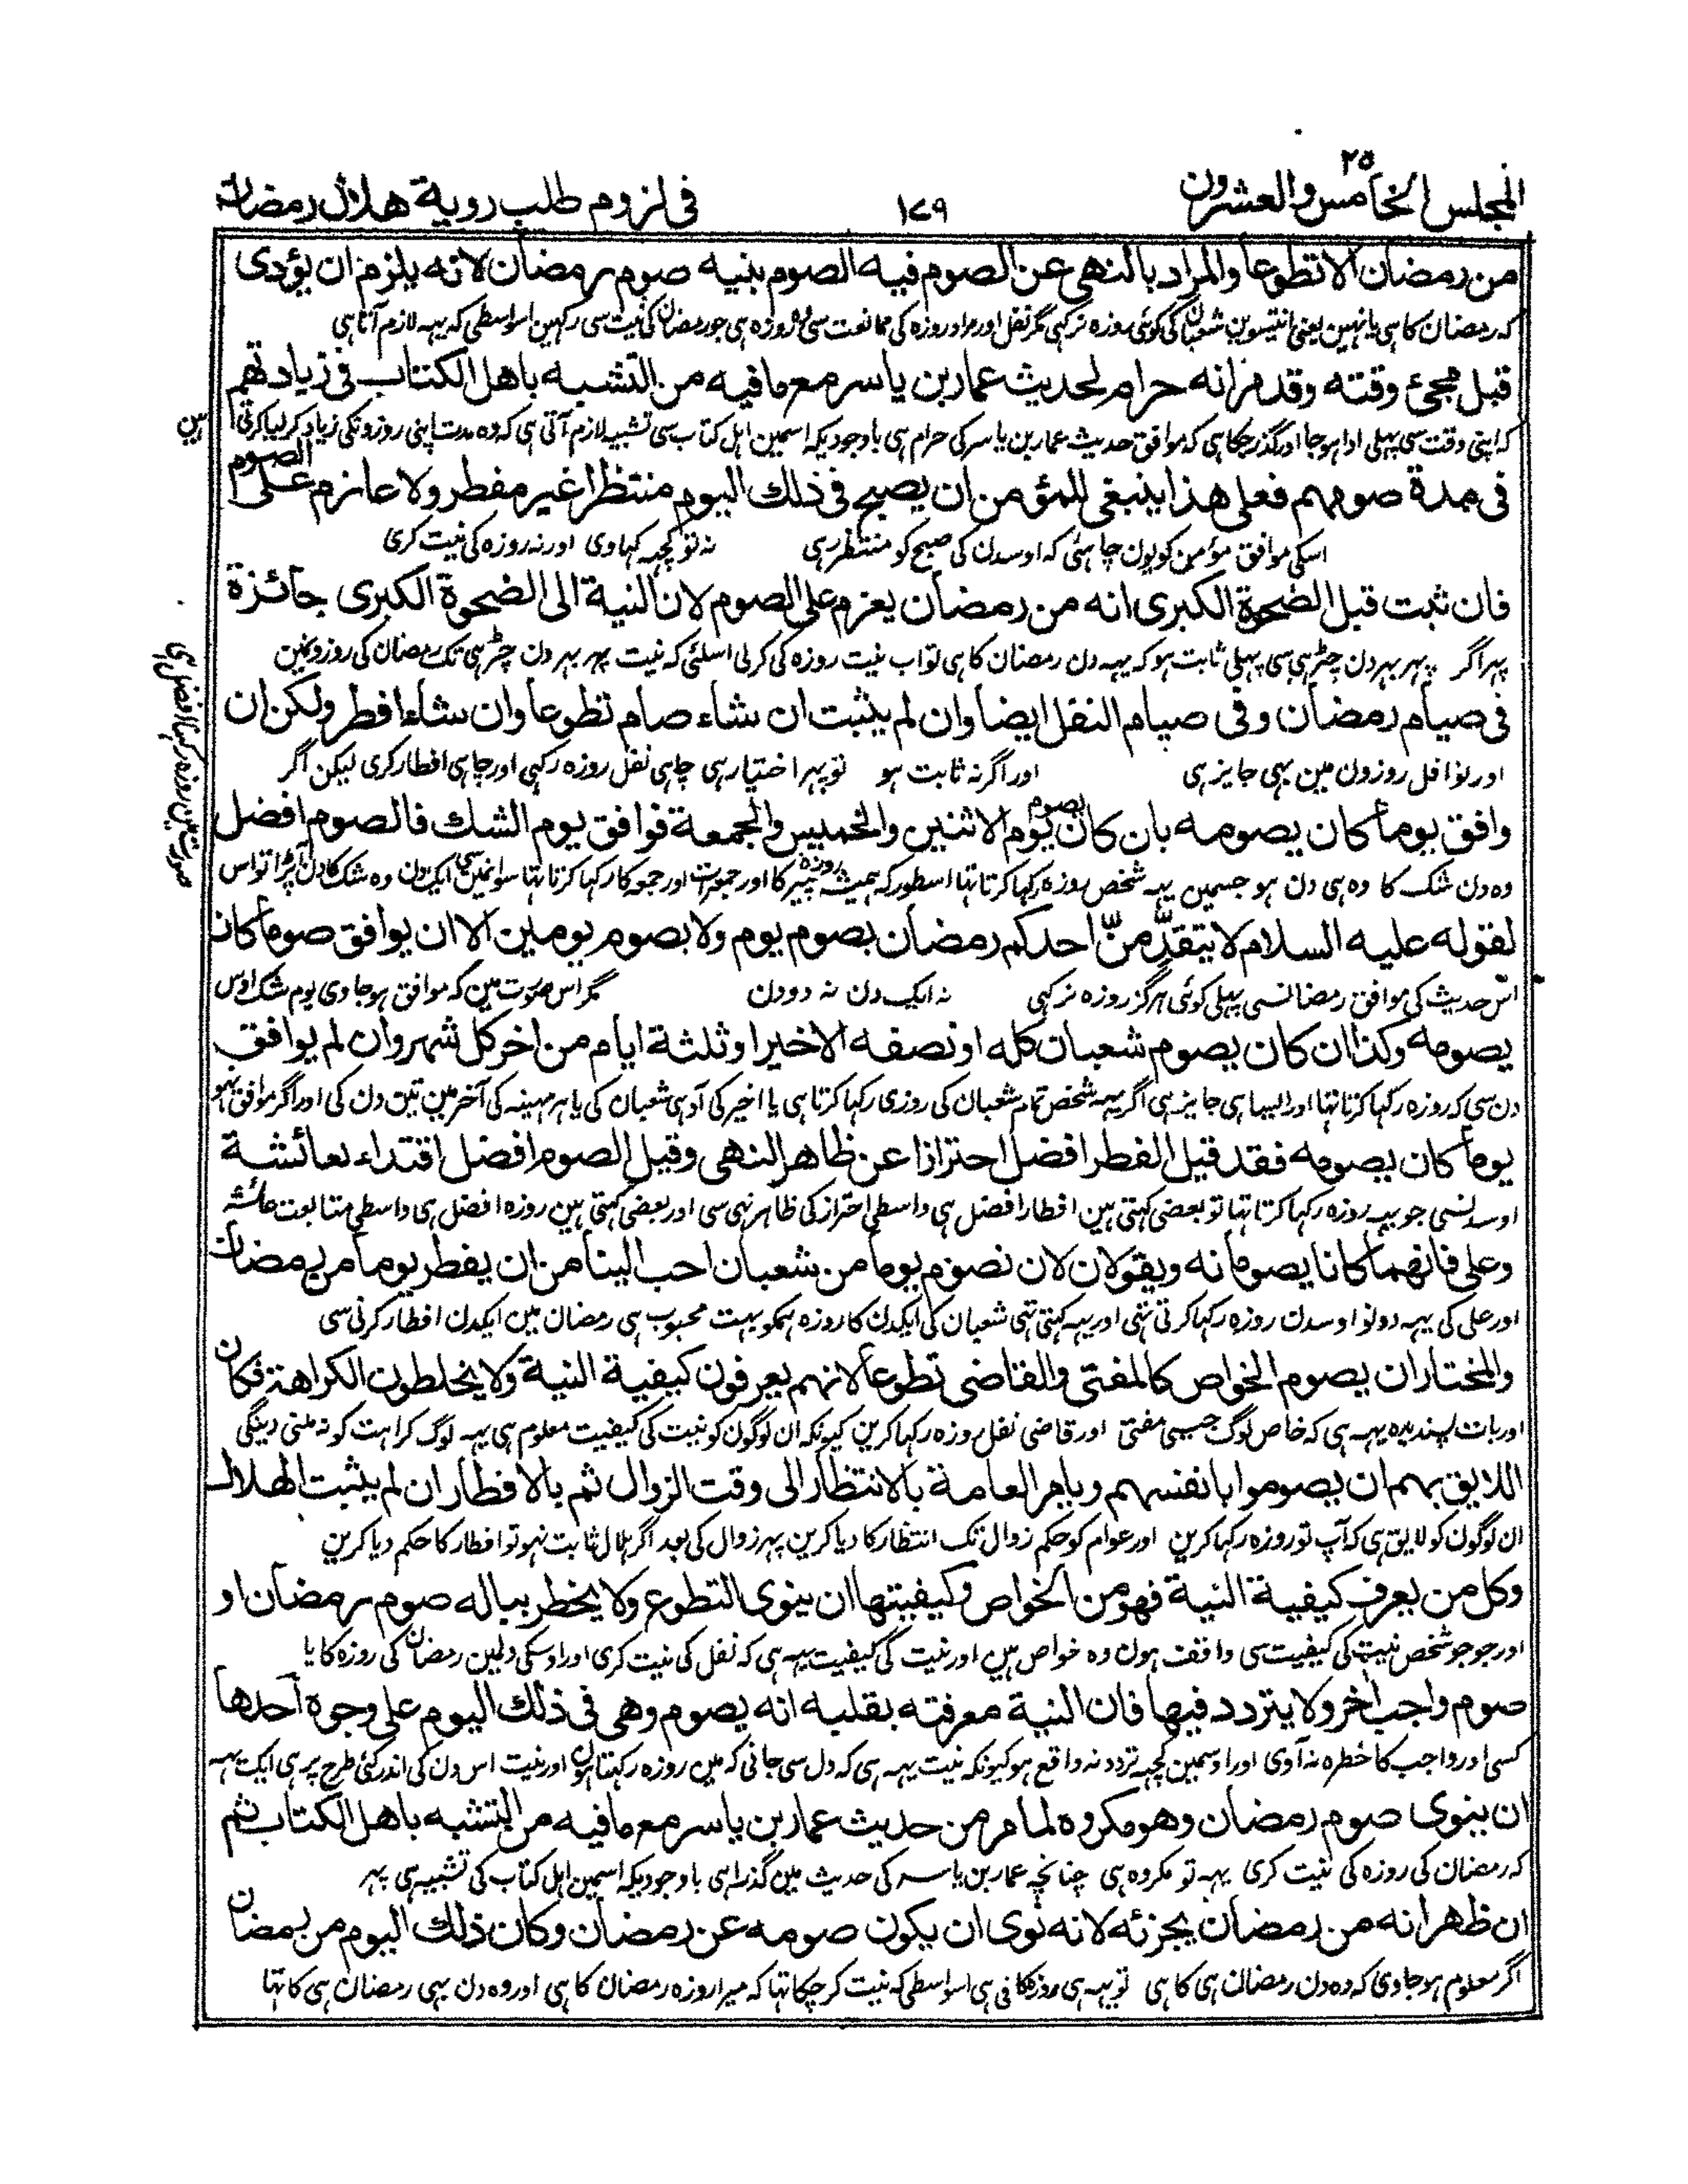 ٢٥
المجلس الخامس والعشرون
١٧٩
فى لزوم طلب روية هلال رمضان
من رمضان الا تطوعا والمراد بالنهى عن الصوم فيه الصوم بنيه صوم رمضان لانه يلزم ان يؤدى
كہ رمضان كا ہى يا نہين يعنى انتيسوين شعبان كى كوئى روزہ نركہى مگر نفل اور مراد روزہ كى ممانعت سى وہ روزہ ہى جو رمضان كى نيت سى ركہين اسواسطى كہ يہہ لازم آتا ہى
قبل مجئ وقته وقد مر انه حرام لحديث عمار بن ياسر مع ما فيه من التشبه باهل الكتاب فى زيادتهم
كہ اپنى وقت سى پہلى ادا ہو جا اور گذر چكا ہى كہ موافق حديث عمار بن ياسر كى حرام ہى باوجوديكہ اسمين اہل كتاب سى تشبيہ لازم آتى ہى كہ وہ مدت اپنى روزونكى زيادہ كر ليا كرتى
ہين
فى مدة صومهم فعلى هذا ينبغى للمؤمن ان يصبح فى ذلك اليوم منتظرا غير مفطر ولا عازم على الصوم
اسكى موافق مؤمن كو يون چاہئى كہ اوسدن كى صبح كو منتظر رہى نہ تو كچہہ كہاوى اور نہ روزہ كى نيت كرى
فان ثبت قبل الضحوة الكبرى انه من رمضان يعزم على الصوم لان النية الى الضحوة الكبرى جائزة
پہر اگر پہر بہر دن چڑہى سى پہلى ثابت ہو كہ يہہ دن رمضان كا ہى تو اب نيت روزہ كى كرلى اسلئى كہ نيت پہر بہر دن چڑہى تك رمضان كى روزونمين
فى صيام رمضان وفى صيام النفل ايضا وان لم يثبت ان شاء صام تطوعا وان شاء افطر ولكن ان
اور نوافل روزون مين بہى جايز ہى اور اگر نہ ثابت ہو تو پہر اختيار ہى چاہى نفل روزہ ركہى اور چاہى افطار كرى ليكن اگر
وافق يوما كان يصومه بان كان يصوم يوم الاثنين والخميس والجمعة فوافق يوم الشك فالصوم افضل
وہ دن شك كا وہ ہى دن ہو جسمين يہہ شخص روزہ ركہا كرتا تہا اسطور كہ ہميشہ روزہ پير كا اور جمعرات اور جمعہ كا ركہا كرتا تہا سو انمين سى ايكدن وہ شك كا دن آپڑا تو اس
صورت مين روزہ ركہنا افضل ہى
لقوله عليه السلام لا يتقدمن احدكم رمضان بصوم يوم ولا بصوم يومين الا ان يوافق صوما كان
اس حديث كى موافق رمضانسى پہلى كوئى ہرگز روزہ نركہى نہ ايك دن نہ دو دن مگر اس صورت مين كہ موافق ہو جاوى يوم شك اوس
يصومه وكذا ان كان يصوم شعبان كله او نصفه الاخير او ثلثة ايام من اخر كل شهر وان لم يوافق
دن سى كہ روزہ ركہا كرتا تہا اور ايسا ہى جايز ہى اگر يہہ شخص تمام شعبان كى روزى ركہا كرتا ہى يا اخير كى آدہى شعبان كى يا ہر مہينہ كى آخر مين تين دن كى اور اگر موافق نہو
يوما كان يصومه فقد قيل الفطر افضل احترازا عن ظاهر النهى وقيل الصوم افضل اقتداء بعائشة
اوسدنسى جو يہہ روزہ ركہا كرتا تہا تو بعضى كہتى ہين افطار افضل ہى واسطى احتراز كى ظاہر نہى سى اور بعضى كہتى ہين روزہ افضل ہى واسطى متابعت عائشہ
وعلى فانهما كانا يصومانه ويقولان لان نصوم يوما من شعبان احب الينا من ان يفطر يوما من رمضان
اور على كى يہہ دونو اوسدن روزہ ركہا كرتى تہى اور يہہ كہتى تہى شعبان كى ايكدن كا روزہ ہمكو بہت محبوب ہى رمضان مين ايكدن افطار كرنى سى
والمختار ان يصوم الخواص كالمفتى والقاضى تطوعا لانهم يعرفون كيفية النية ولا يخلطون الكراهة فكان
اور بات پسنديدہ يہہ ہى كہ خاص لوگ جيسى مفتى اور قاضى نفل روزہ ركہا كرين كيونكہ ان لوگون كو نيت كى كيفيت معلوم ہى يہہ لوگ كراہت كو نہ ملنى دينگى
اللايق بهم ان يصوموا بانفسهم ويامر العامة بالانتظار الى وقت الزوال ثم بالافطار ان لم يثبت الهلال
ان لوگون كو لايق ہى كہ آپ تو روزہ ركہا كرين اور عوام كو حكم زوال تك انتظار كا ديا كرين پہر زوال كى بعد اگر ہلال ثابت نہو تو افطار كا حكم ديا كرين
وكل من يعرف كيفية النية فهو من الخواص وكيفيتها ان ينوى التطوع ولا يخطر بباله صوم رمضان او
اور جو جو شخص نيت كى كيفيت سى واقف ہون وہ خواص ہين اور نيت كى كيفيت يہہ ہى كہ نفل كى نيت كرى اور اوسكى دلمين رمضان كى روزہ كا يا
صوم واجب اخر ولا يتردد فيها فان النية معرفته بقلبه انه يصوم وهى فى ذلك اليوم على وجوه احدها
كسى اور واجب كا خطرہ نہ آوى اور اوسمين كچہہ تردد نہ واقع ہو كيونكہ نيت يہہ ہى كہ دل سى جانى كہ مين روزہ ركہتا ہون اور نيت اس دن كى اندر كئى طرح پر ہى ايك يہہ
ان ينوى صوم رمضان وهو مكروه لما مر من حديث عمار بن ياسر مع ما فيه من التشبه باهل الكتاب ثم
كہ رمضان كى روزہ كى نيت كرى يہہ تو مكروہ ہى چنانچہ عمار بن ياسر كى حديث مين گذرا ہى باوجوديكہ اسمين اہل كتاب كى تشبيہ ہى پہر
ان ظهر انه من رمضان يجزئه لانه نوى ان يكون صومه عن رمضان وكان ذلك اليوم من رمضان
اگر معلوم ہو جاوى كہ وہ دن رمضان ہى كا ہى تو يہہ ہى روزہ كافى ہى اسواسطى كہ نيت كر چكا تہا كہ ميرا روزہ رمضان كا ہى اور وہ دن بہى رمضان ہى كا تہا